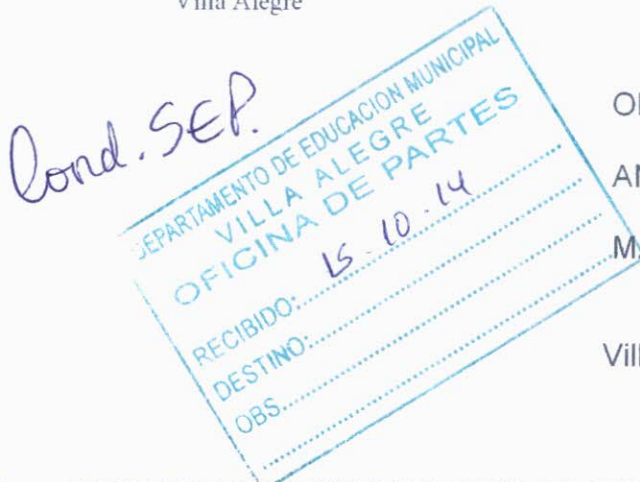 Villa Alegre
Cond. SEP.
DEPARTAMENTO DE EDUCACION MUNICIPAL
VILLA ALEGRE
OFICINA DE PARTES
RECIBIDO: 15-10-14
DESTINO:
OBS.